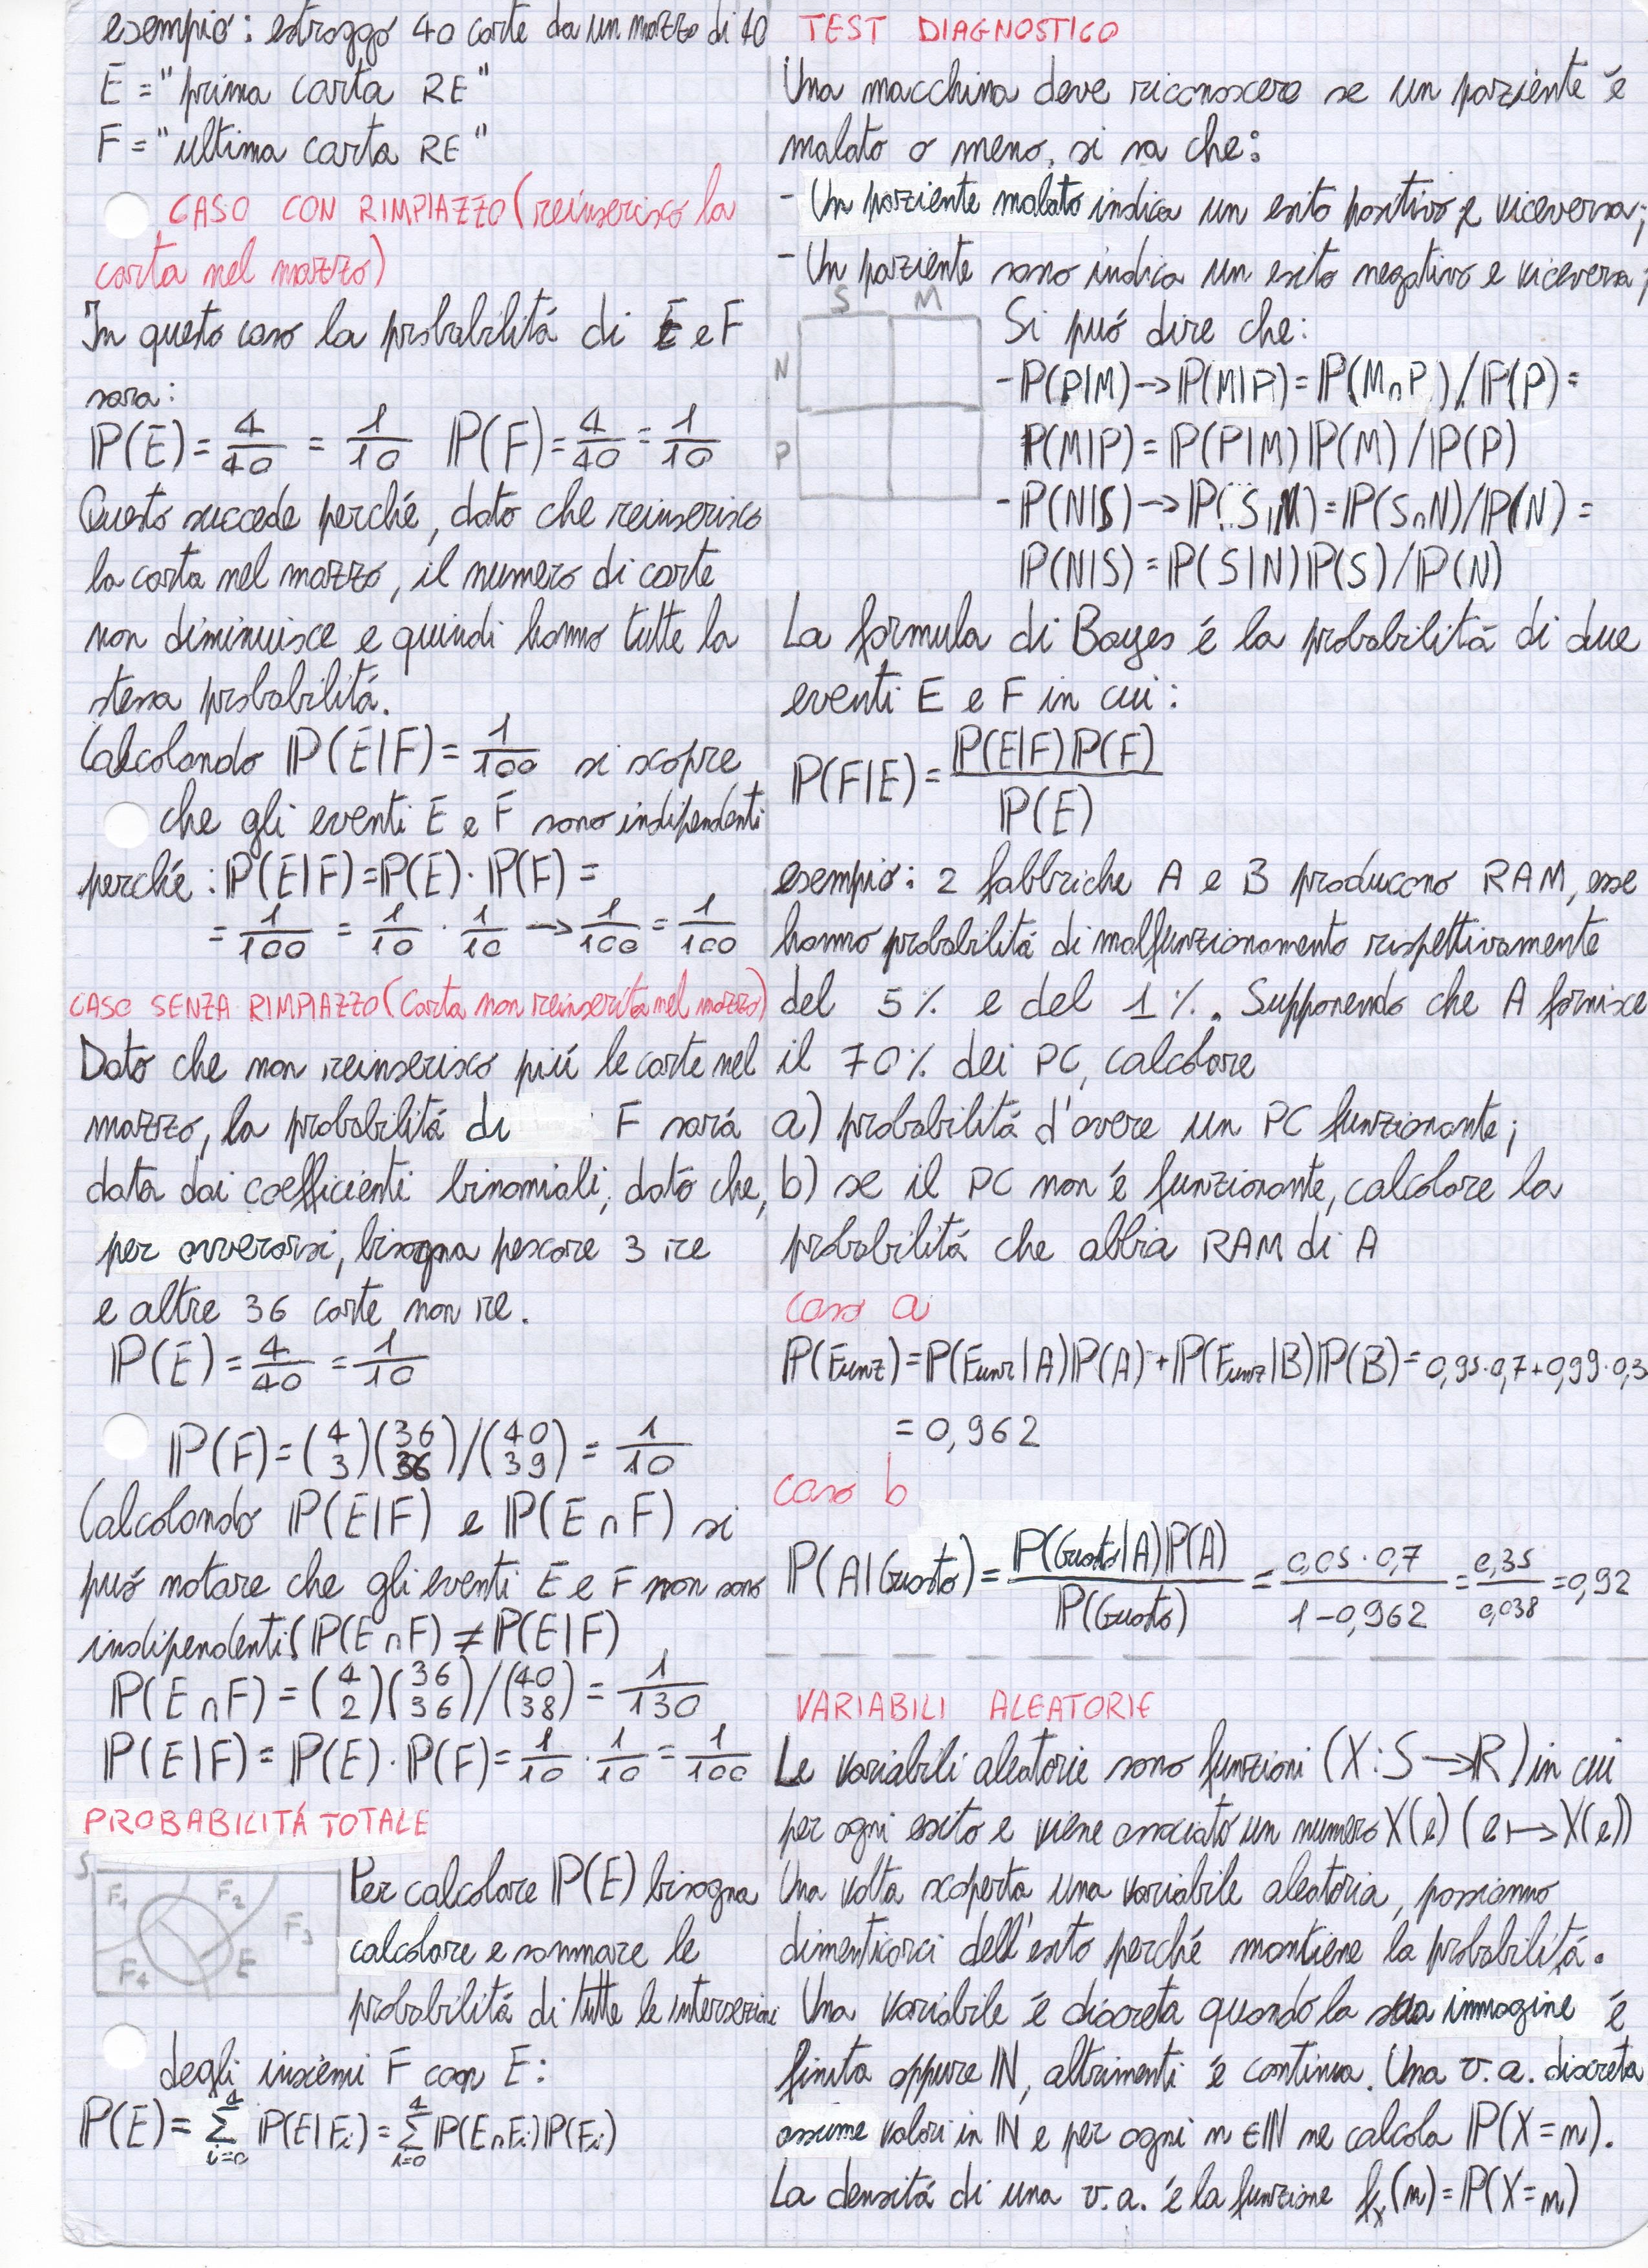 esempio: estraggo 40 carte da un mazzo di 40
E = "prima carta RE"
F = "ultima carta RE"
CASO CON RIMPIAZZO (reinserisco la
carta nel mazzo)
In questo caso la probabilitá di E e F
sara:
P(E) = 4/40 = 1/10 P(F) = 4/40 = 1/10
Questo succede perché, dato che reinserisco
la carta nel mazzo, il numero di carte
non diminuisce e quindi hanno tutte la
stessa probabilitá.
Calcolando P(E|F) = 1/100 si scopre
che gli eventi E e F sono indipendenti
perché: P(E|F) = P(E) · P(F) =
= 1/100 = 1/10 · 1/10 → 1/100 = 1/100
CASO SENZA RIMPIAZZO (Carta non reinserita nel mazzo)
Dato che non reinserisco piú le carte nel
mazzo, la probabilitá di F sará
data dai coefficienti binomiali, dato che,
per avverarsi, bisogna pescare 3 re
e altre 36 carte non re.
P(E) = 4/40 = 1/10
P(F) = (4 3)(36 36)/(40 39) = 1/10
Calcolando P(E|F) e P(E∩F) si
puó notare che gli eventi E e F non sono
indipendenti(P(E∩F) ≠ P(E|F)
P(E∩F) = (4 2)(36 36)/(40 38) = 1/130
P(E|F) = P(E) · P(F) = 1/10 · 1/10 = 1/100
PROBABILITÁ TOTALE
S
F1 F2 F3 F4 E
Per calcolare P(E) bisogna
calcolare e sommare le
probabilitá di tutte le intersezioni
degli insiemi F con E:
P(E) = Σ i=0 4 P(E|Fi) = Σ i=0 4 P(E∩Fi)P(Fi)
TEST DIAGNOSTICO
Una macchina deve riconoscere se un paziente é
malato o meno, si sa che:
- Un paziente malato indica un esito positivo e viceversa;
- Un paziente sano indica un esito negativo e viceversa;
S M
N
P
Si puó dire che:
- P(P|M) → P(M|P) = P(M∩P)/P(P) =
P(M|P) = P(P|M)P(M)/P(P)
- P(N|S) → P(S|N) = P(S∩N)/P(N) =
P(N|S) = P(S|N)P(S)/P(N)
La formula di Bayes é la probabilitá di due
eventi E e F in cui:
P(F|E) = P(E|F)P(F)/P(E)
esempio: 2 fabbriche A e B producono RAM, esse
hanno probabilitá di malfunzionamento rispettivamente
del 5% e del 1%. Supponendo che A fornisce
il 70% dei PC, calcolare
a) probabilitá d'avere un PC funzionante;
b) se il PC non é funzionante, calcolare la
probabilitá che abbia RAM di A
caso a
P(Funz) = P(Funz|A)P(A) + P(Funz|B)P(B) = 0,95·0,7+0,99·0,3
= 0,962
caso b
P(A|Guasto) = P(Guasto|A)P(A)/P(Guasto) = 0,05·0,7/1-0,962 = 0,35/0,038 = 0,92
VARIABILI ALEATORIE
Le variabili aleatorie sono funzioni (X:S→R) in cui
per ogni esito e viene associato un numero X(e) (e↦X(e))
Una volta scoperta una variabile aleatoria, possiamo
dimenticarci dell'esito perché mantiene la probabilitá.
Una variabile é discreta quando la sua immagine é
finita oppure N, altrimenti é continua. Una v.a. discreta
assume valori in N e per ogni n∈N ne calcola P(X=n).
La densitá di una v.a. é la funzione fx(n) = P(X=n)